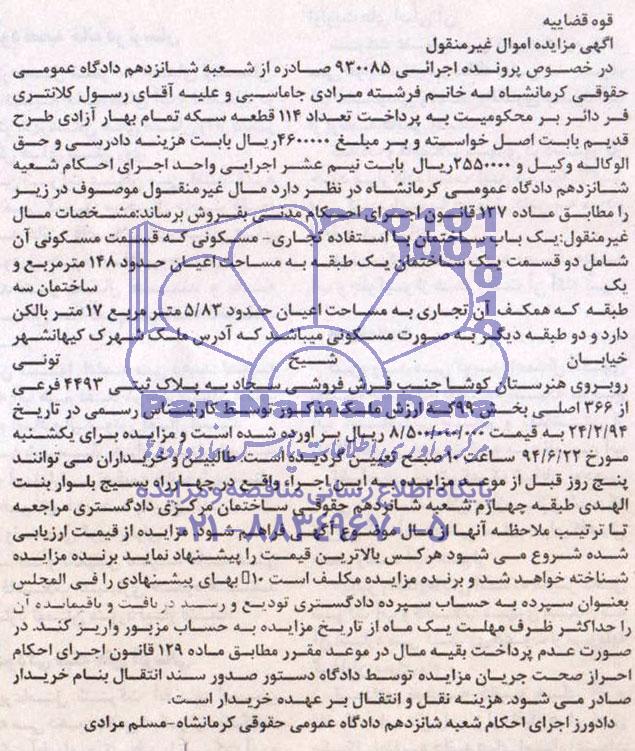 قوه قضاییه
آگهی مزایده اموال غیرمنقول
در خصوص پرونده اجرائی ۹۳۰۰۸۵ صادره از شعبه شانزدهم دادگاه عمومی
حقوقی کرمانشاه له خانم فرشته مرادی جاماسبی و علیه آقای رسول کلانتری
فر دائر بر محکومیت به پرداخت تعداد ۱۱۴ قطعه سکه تمام بهار آزادی طرح
قدیم بابت اصل خواسته و بر مبلغ ۴۶۰۰۰۰۰ریال بابت هزینه دادرسی و حق
الوکاله وکیل و ۲۵۵۰۰۰۰ریال بابت نیم عشر اجرایی واحد اجرای احکام شعبه
شانزدهم دادگاه عمومی کرمانشاه در نظر دارد مال غیرمنقول موصوف در زیر
را مطابق ماده ۱۳۷ قانون اجرای احکام مدنی بفروش برساند:مشخصات مال
غیرمنقول:یک باب ساختمان با استفاده تجاری- مسکونی که قسمت مسکونی آن
شامل دو قسمت یک ساختمان یک طبقه به مساحت اعیان حدود ۱۴۸ مترمربع و
یک ساختمان سه
طبقه که همکف آن تجاری به مساحت اعیان حدود ۵/۸۳ متر مربع ۱۷ متر بالکن
دارد و دو طبقه دیگر به صورت مسکونی میباشد که آدرس ملک شهرک کیهانشهر
خیابان شیخ تونی
روبروی هنرستان کوشا جنب فرش فروشی سجاد به پلاک ثبتی ۴۴۹۳ فرعی
از ۳۶۶ اصلی بخش ۹۹که ارزش ملک مذکور توسط کارشناس رسمی در تاریخ
۲۴/۲/۹۴ به قیمت ۸/۵۰۰/۰۰۰/۰۰۰ ریال بر آورده شده است و مزایده برای یکشنبه
مورخ ۹۴/۶/۲۲ ساعت ۱۰ صبح تعیین گردیده است طالبین و خریداران می توانند
پنج روز قبل از موعد مزایده به این اجراء واقع در چهارراه بسیج بلوار بنت
الهدی طبقه چهارم شعبه شانزدهم حقوقی ساختمان مرکزی دادگستری مراجعه
تا ترتیب ملاحظه آنها از مال موضوع آگهی فراهم شود مزایده از قیمت ارزیابی
شده شروع می شود هرکس بالاترین قیمت را پیشنهاد نماید برنده مزایده
شناخته خواهد شد و برنده مزایده مکلف است ۱۰ بهای پیشنهادی را فی المجلس
بعنوان سپرده به حساب سپرده دادگستری تودیع و رسید دریافت و باقیمانده آن
را حداکثر ظرف مهلت یک ماه از تاریخ مزایده به حساب مزبور واریز کند در
صورت عدم پرداخت بقیه مال در موعد مقرر مطابق ماده ۱۲۹ قانون اجرای احکام
احراز صحت جریان مزایده توسط دادگاه دستور صدور سند انتقال بنام خریدار
صادر می شود. هزینه نقل و انتقال بر عهده خریدار است.
دادورز اجرای احکام شعبه شانزدهم دادگاه عمومی حقوقی کرمانشاه-مسلم مرادی
ParsNamadData
مرکز فرآوری اطلاعات پارس نماد داده ها
پایگاه اطلاع رسانی مناقصه و مزایده
۰۲۱-۸۸۳۴۹۶۷۰-۵